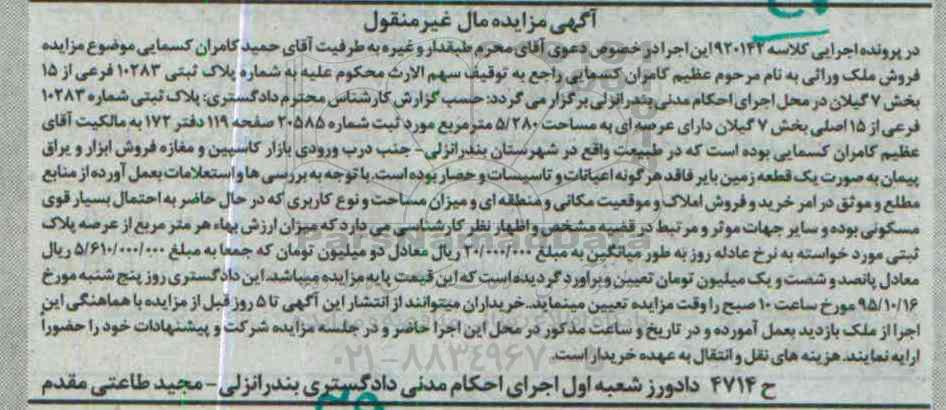 آگهی مزایده مال غیرمنقول
در پرونده اجرایی کلاسه ۹۲۰۱۴۲ این اجرا در خصوص دعوی آقای محرم طبقدار و غیره به طرفیت آقای حمید کامران کسمایی موضوع مزایده
فروش ملک وراثی به نام مرحوم عظیم کامران کسمایی راجع به توقیف سهم الارث محکوم علیه به شماره پلاک ثبتی ۱۰۲۸۳ فرعی از ۱۵
بخش ۷ گیلان در محل اجرای احکام مدنی بندرانزلی برگزار می گردد: حسب گزارش کارشناس محترم دادگستری: پلاک ثبتی شماره ۱۰۲۸۳
فرعی از ۱۵ اصلی بخش ۷ گیلان دارای عرصه ای به مساحت ۵/۲۸۰ متر مربع مورد ثبت شماره ۲۰۵۸۵ صفحه ۱۱۹ دفتر ۱۷۲ به مالکیت آقای
عظیم کامران کسمایی بوده است که در طبیعت واقع در شهرستان بندرانزلی- جنب درب ورودی بازار کاسپین و مغازه فروش ابزار و یراق
پیمان به صورت یک قطعه زمین بایر فاقد هرگونه اعیانات و تاسیسات و حصار بوده است. با توجه به بررسی ها و استعلامات بعمل آورده از منابع
مطلع و موثق در امر خرید و فروش املاک و موقعیت مکانی و منطقه ای و میزان مساحت و نوع کاربری که در حال حاضر به احتمال بسیار قوی
مسکونی بوده و سایر جهات موثر و مرتبط در قضیه مشخص و اظهار نظر کارشناسی می دارد که میزان ارزش بهاء هر متر مربع از عرصه پلاک
ثبتی مورد خواسته به نرخ عادله روز به طور میانگین به مبلغ ۲۰/۰۰۰/۰۰۰ ریال معادل دو میلیون تومان که جمعا به مبلغ ۵/۶۱۰/۰۰۰/۰۰۰ ریال
معادل پانصد و شصت و یک میلیون تومان تعیین و برآورد گردیده است که این قیمت پایه مزایده میباشد. این دادگستری روز پنج شنبه مورخ
۹۵/۱۰/۱۶ مورخ ساعت ۱۰ صبح را وقت مزایده تعیین مینماید. خریداران میتوانند از انتشار این آگهی تا ۵ روز قبل از مزایده با هماهنگی این
اجرا از ملک بازدید بعمل آمورده و در تاریخ و ساعت مذکور در محل این اجرا حاضر و در جلسه مزایده شرکت و پیشنهادات خود را حضوراً
ارایه نمایند. هزینه های نقل و انتقال به عهده خریدار است.
۰۲۱-۸۸۳۴۹۶۷۰
ح ۴۷۱۴ دادورز شعبه اول اجرای احکام مدنی دادگستری بندرانزلی - مجید طاعتی مقدم